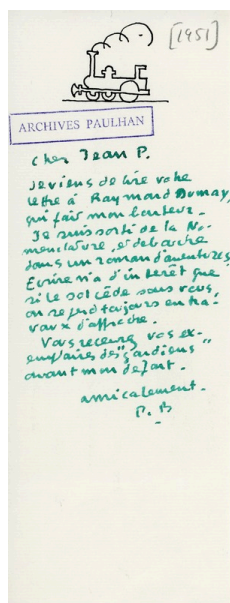 [1951]
ARCHIVES PAULHAN
cher Jean P.
Je viens de lire votre
lettre à Raymond Dumay,
qui fait mon bonheur.
Je suis sorti de la No-
menclature, et débouche
dans un roman d'aventures.
Ecrire n'a d'intérêt que
si le sol cède sous vous,
on se perd toujours en tra-
vaux d'approche.
Vous recevrez vos ex-
emplaires des "gardiens"
avant mon départ.
amicalement.
P. B